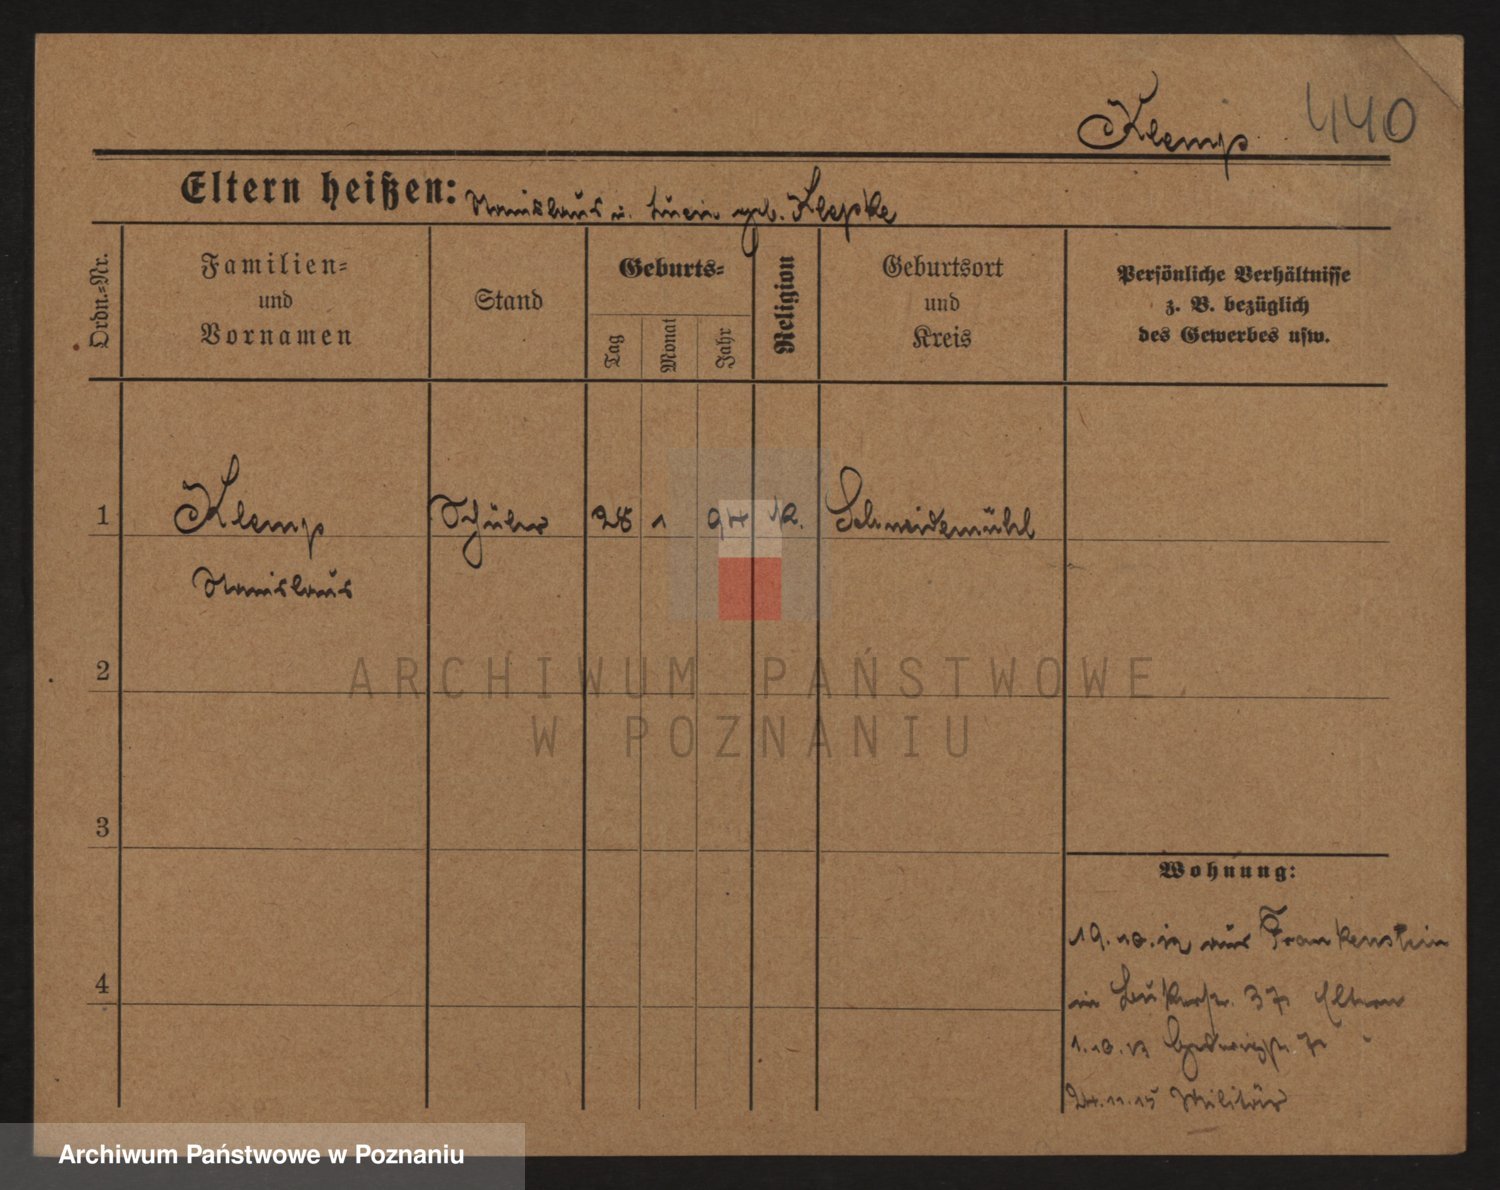 Klemp 440
Eltern heißen: Stanislaus u. geb. Klepke
Ordn.=Nr.
Familien=
und
Vornamen
Stand
Geburts=
Tag
Monat
Jahr
Religion
Geburtsort
und
Kreis
Persönliche Verhältnisse
z. B. bezüglich
des Gewerbes usw.
1 Klemp Schüler 28 1 97 K. Schneidemühl
Stanislaus
2
3
4
Wohnung:
19.10.12 aus Frankenstein
in 37 Eltern
1.10.13 7 "
24.11.15 Militär
ARCHIWUM PAŃSTWOWE
W POZNANIU
Archiwum Państwowe w Poznaniu